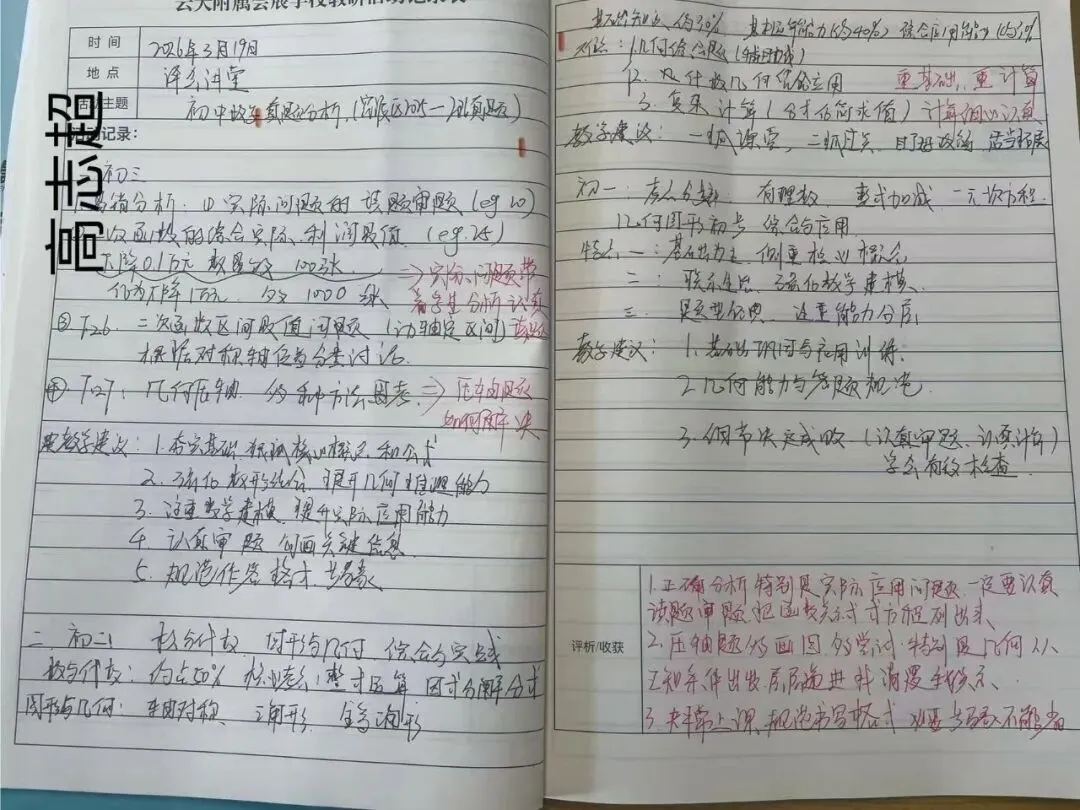 云大附属会展学校教研活动记录表
时间 2026年3月19日
地点 译系讲堂
活动主题 初中数学真题分析
活动记录:
高志超
初三
分析. ① 实际问题的读题审题 (eg 10)
次函数的综合实际.利润最值. (eg.25)
下降0.1万元 数量多 100张
价格下降1万元. 多 1000 张
⇒实际问题带
着学生分析认真
③ T26. 二次函数区间最值问题 (动轴定区间)
根据对称轴位置分类讨论.
④ T27: 几何压轴. 多种方法思考 ⇒ 压轴题
如何解决
教学建议: 1. 夯实基础 核心概念和公式
2. 强化数形结合 提升几何推理能力
3. 注重数学建模. 提升实际应用能力
4. 认真审题 勾画关键信息.
5. 规范作答格式 步骤
二、初二 数与代数 图形与几何 综合与实践
数与代数: 约占50% 核心考点: 整式运算 因式分解 分式
图形与几何: 轴对称. 三角形. 全等三角形
基础知识 约30% 基本运算能力(约40%) 综合应用能力
1.几何综合题 (辅助线)
2. 代数几何综合应用 重基础,重计算
3. 复杂计算 (分式化简求值) 计算细心认真
教学建议: 一抓课堂, 二抓过关, 适当拓展
初一: 考点分析 有理数, 整式加减 一元一次方程.
几何图形初步 综合与应用.
特点 一: 基础为主, 侧重核心概念
二: 联系生活, 强化数学建模.
三. 题型经典 注重能力分层
教学建议: 1. 基础巩固与应用训练.
2 几何能力与答题规范.
3. 细节决定成败 (认真审题、认真计算)
学会有效检查.
评析/收获
1. 正确分析 特别是实际应用问题. 一定要认真
读题审题. 把函数关系式 方程列出来.
2. 压轴题多画图 多尝试. 特别是几何 从
已知条件出发 层层递进
3. 平常上课. 规范书写格式 必要步骤不能少